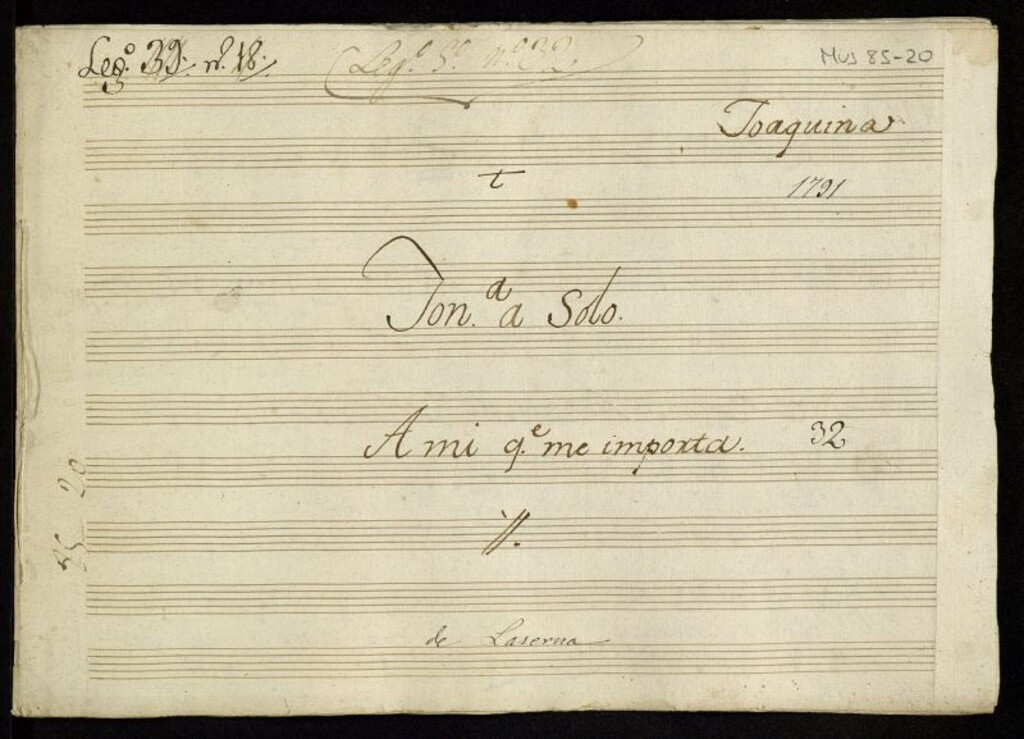 Leg.º 39. n.º 18.
Leg.º 5.º n.º 32
MUS 85-20
Joaquina
t
1791
Ton.d a Solo.
A mi q.e me importa. 32
//.
de Laserna
85 20